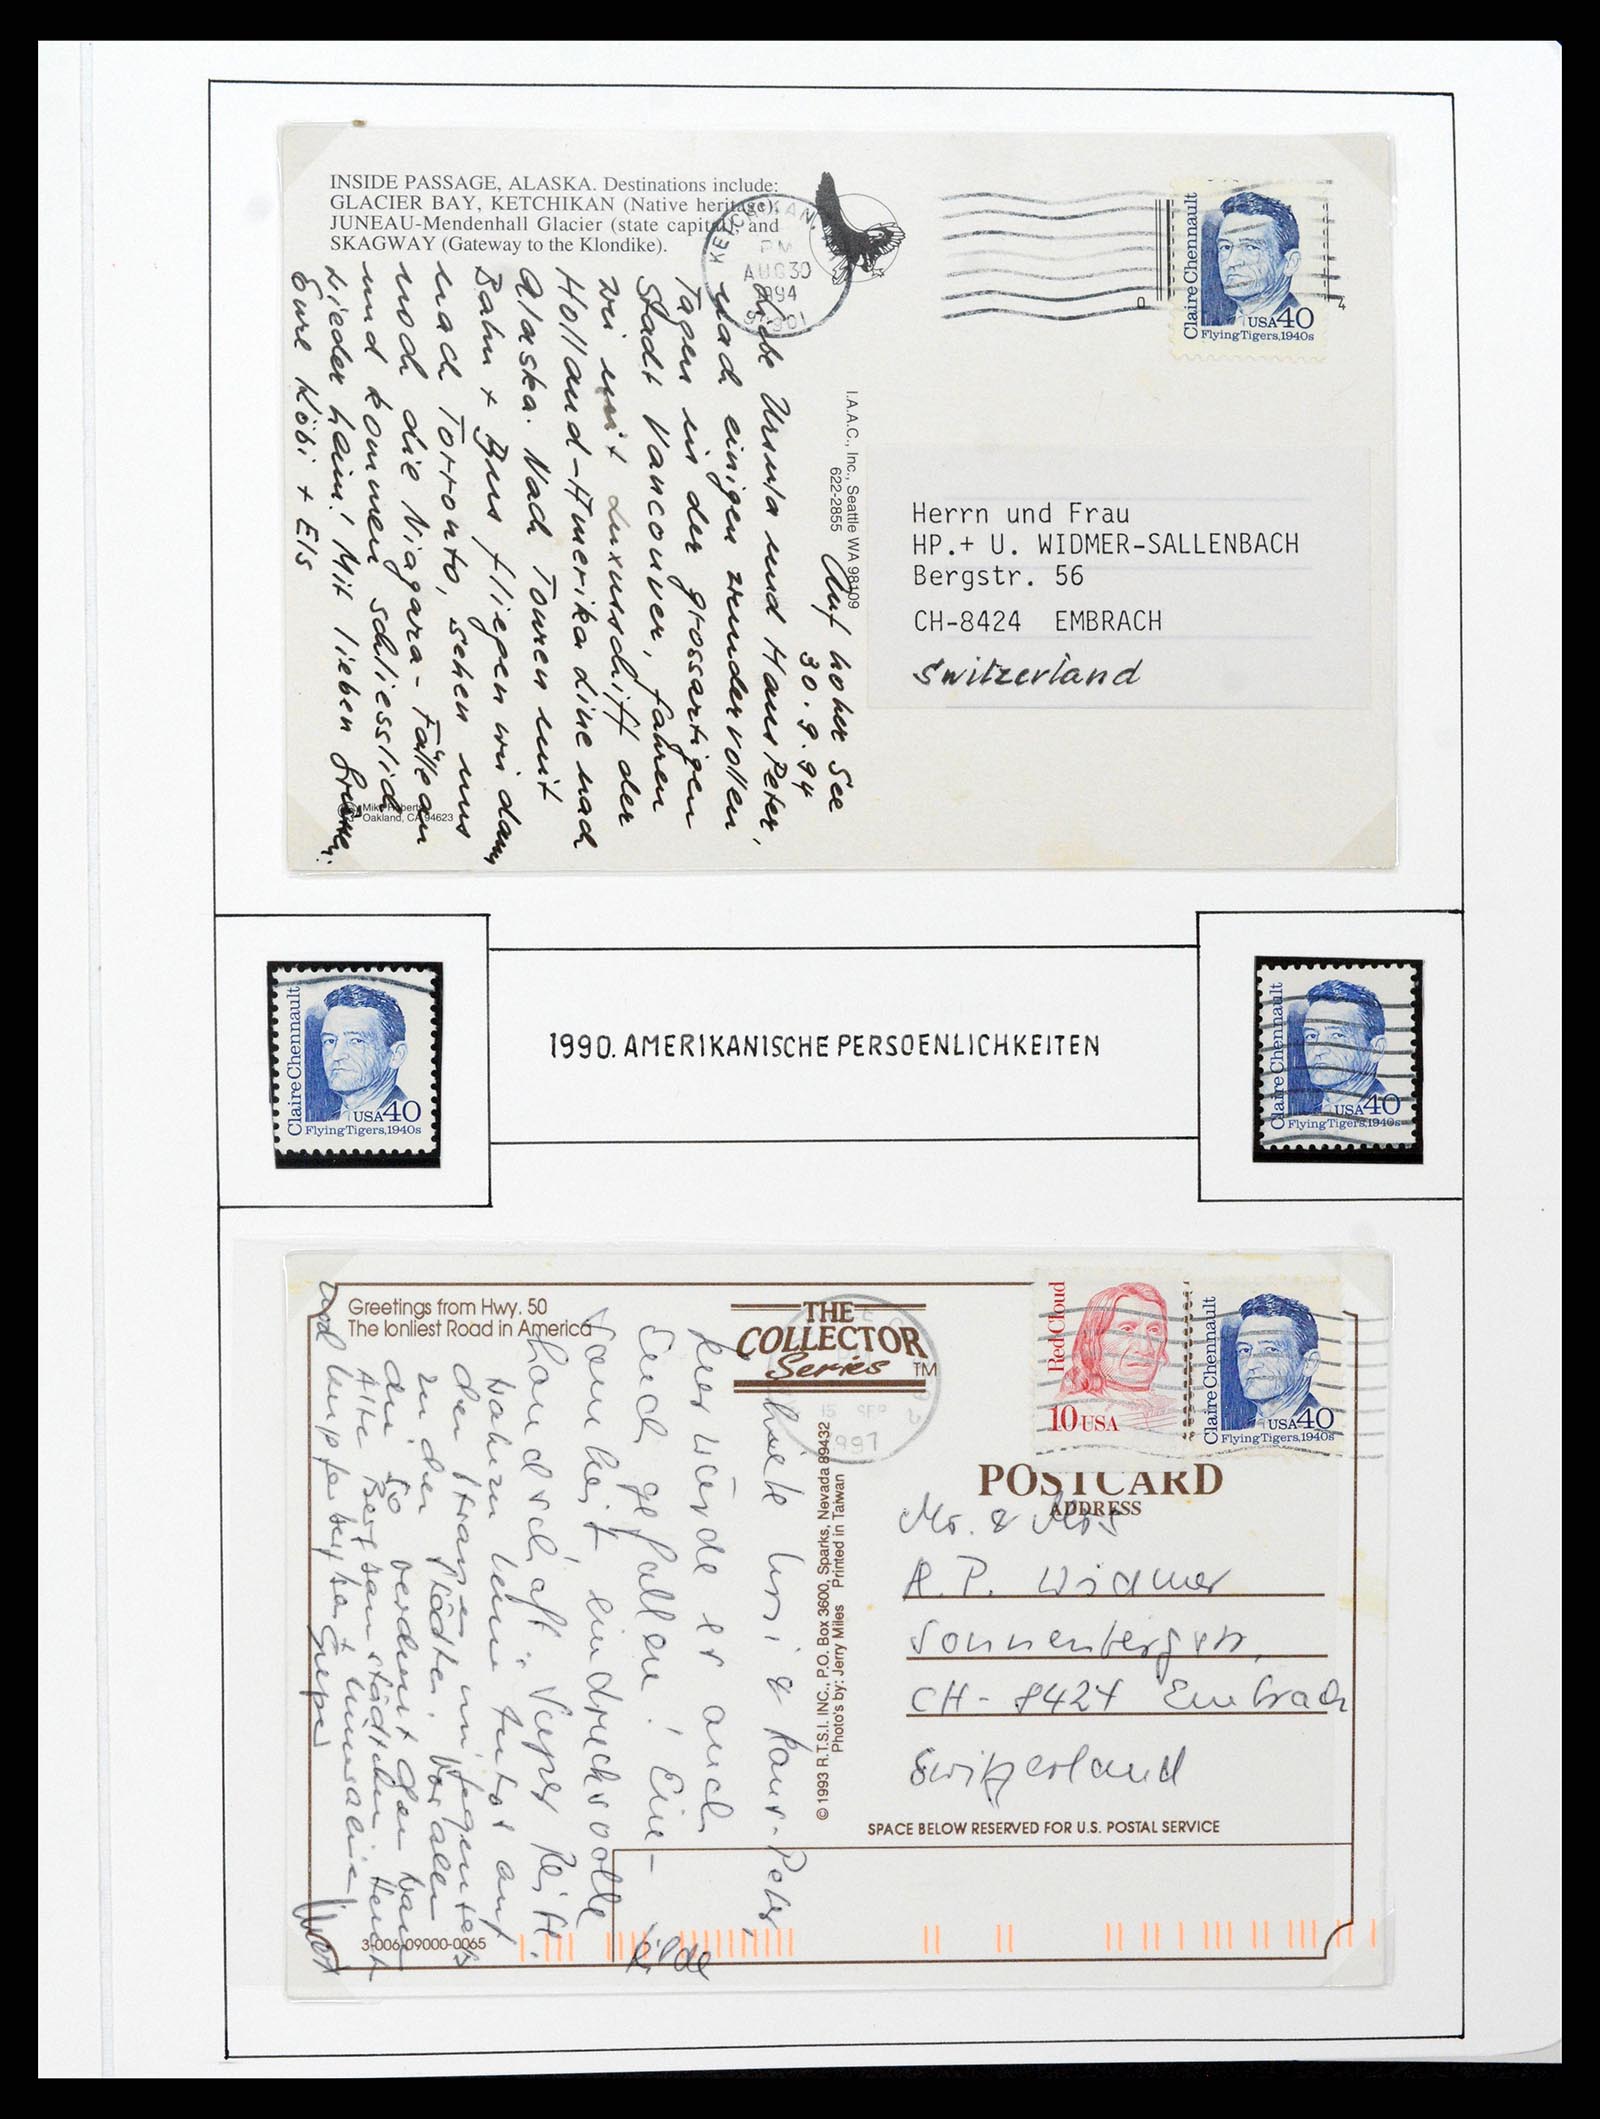 INSIDE PASSAGE, ALASKA. Destinations include:
GLACIER BAY, KETCHIKAN (Native heritage),
JUNEAU-Mendenhall Glacier (state capital), and
SKAGWAY (Gateway to the Klondike).
KETCHIKAN,
PM
AUG 30
1994
Claire Chennault
USA40
Flying Tigers, 1940s
Auf hoher See
30.9.94
Liebe Ursula und Hans Peter,
nach einigen wundervollen
Tagen in der grossartigen
Stadt Vancouver, fahren
wir mit Luxusschiff der
Holland-Amerika Line nach
Alaska. Nach Touren mit
Bahn + Bus fliegen wir dann
nach Torronto, sehen uns
noch die Niagara-Fälle an
und kommen schliesslich
wieder heim! Mit lieben Grüssen:
Eure Köbi + Els
I.A.A.C., Inc., Seattle WA 98109
622-2855
Mike Roberts
Oakland, CA 94623
Herrn und Frau
HP.+ U. WIDMER-SALLENBACH
Bergstr. 56
CH-8424 EMBRACH
Switzerland
Claire Chennault
USA40
Flying Tigers, 1940s
1990. AMERIKANISCHE PERSOENLICHKEITEN
Claire Chennault
USA40
Flying Tigers, 1940s
Greetings from Hwy. 50
The lonliest Road in America
THE
COLLECTOR
Series TM
15 SEP
1997
Red Cloud
10 USA
Claire Chennault
USA40
Flying Tigers, 1940s
POSTCARD
ADDRESS
Mr. & Mrs
H.P. Widmer
Sonnenbergstr.
CH-8424 Embrach
Switzerland
SPACE BELOW RESERVED FOR U.S. POSTAL SERVICE
© 1993 R.T.S.I. INC., P.O. Box 3600, Sparks, Nevada 89432
Photo's by: Jerry Miles Printed in Taiwan
Ursi & Hans-Peter,
hier würde es auch
Euch gefallen! Eine
eindrucksvolle
Landschaft. Super
Autos auf
den Strassen
in den Städten. Vor allem
3-006-09000-0065